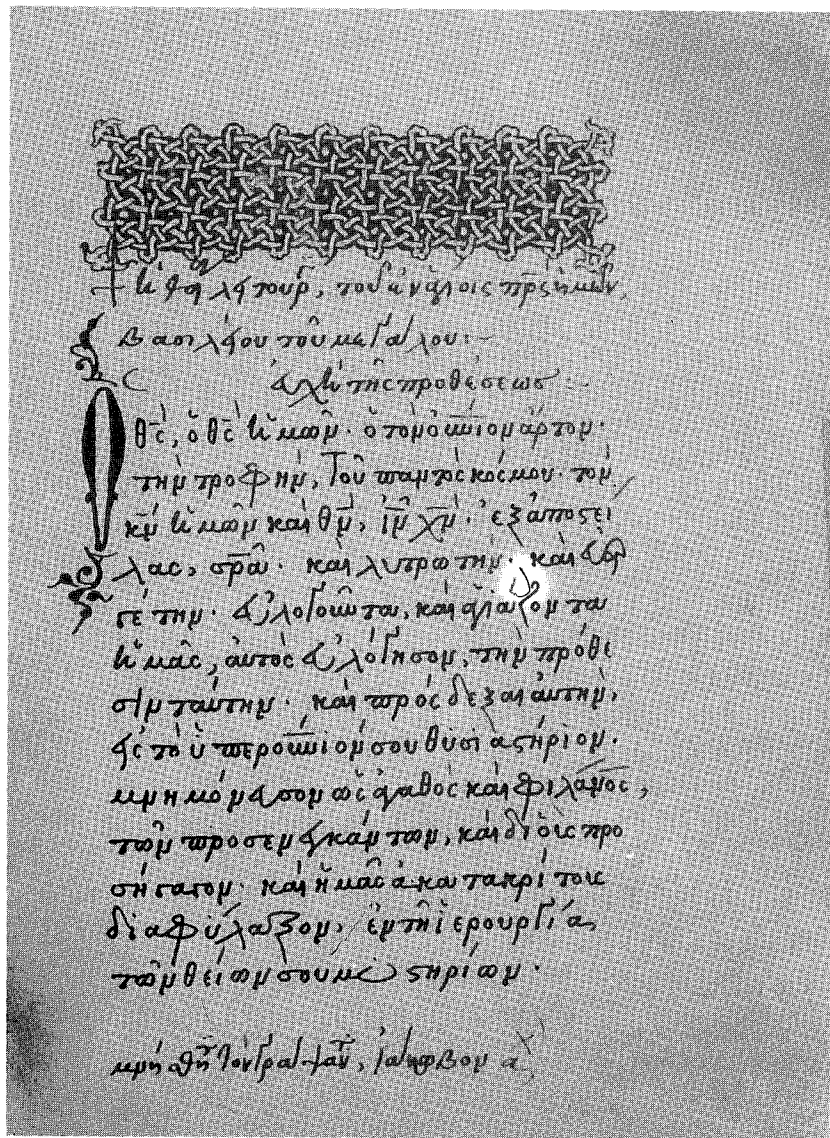 Ἡ θεία λειτουρ, τοῦ ἐν ἁγίοις πρς ἡμῶν,
Βασιλείου τοῦ μεγάλου:-
εὐχὴ τῆς προθέσεως:-
Ὁ θς, ὁ θς ἡμῶν· ὁ τὸν οὐνιον ἄρτον·
τὴν τροφὴν, τοῦ παντὸς κόσμου· τὸν
κν ἡμῶν καὶ θν, ιν χν· ἐξαποστεί
λας, σρα· καὶ λυτρωτὴν· καὶ εὐερ
γέτην· εὐλογοῦντα, καὶ ἁγιάζοντα
ἡμᾶς, αὐτὸς εὐλόγησον, τὴν πρόθε
σιν ταύτην· καὶ πρόσδεξαι αὐτὴν,
εἰς τὸ ὑπερουνιόν σου θυσιαστήριον·
μνημόνευσον ὡς ἀγαθὸς καὶ φιλανος,
τῶν προσενεγκάντων, καὶ δι' οὓς προ
σήγαγον· καὶ ἡμᾶς ἀκατακρίτους
διαφύλαξον, ἐν τῇ ἱερουργίᾳ
τῶν θείων σου μυστηρίων·